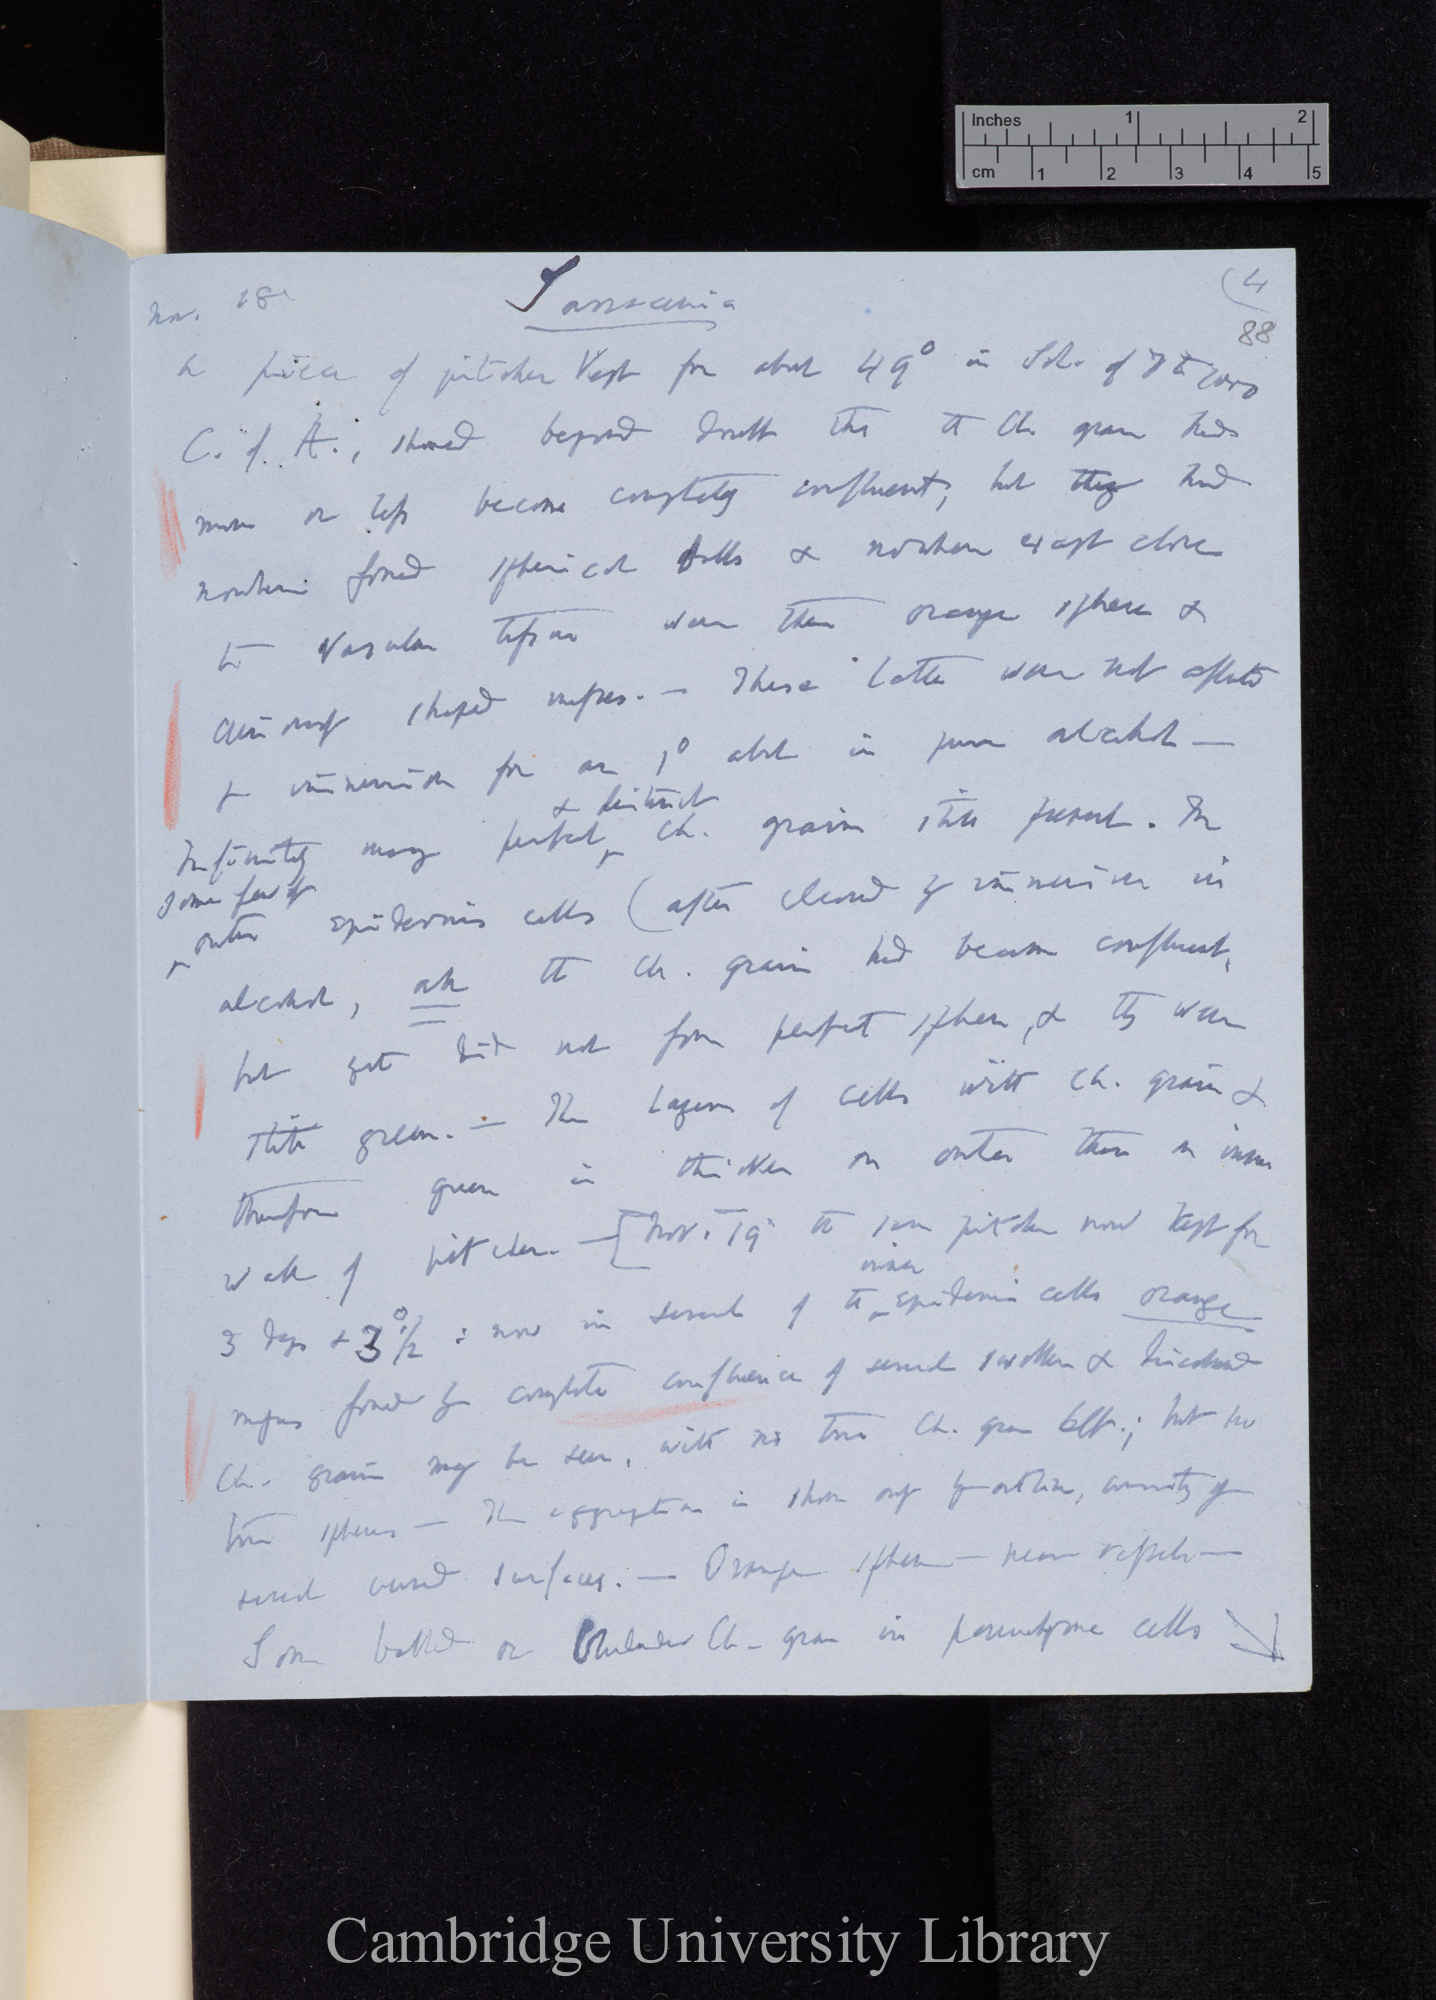 Inches 1 2
cm 1 2 3 4 5
Nov. 18 Sarracenia (4
88
A piece of pitcher kept for about 49° in Sol. of 7 to 1000
C. of A., showed beyond doubt that the Ch. grains had
more or less become completely confluent, but they had
nowhere formed spherical balls & nowhere except close
to Vascular tissue were there orange spheres &
curiously shaped masses. — These latter were not affected
by immersion for an 1° about in pure alcohol —
Infinitely many perfect & distinct Ch. grains still present. In
some few of outer epidermis cells (after cleared by immersion in
alcohol, all the Ch. grains had become confluent,
but yet did not form perfect spheres, & they were
still green. — The Layer of cells with Ch. grains &
therefore green is thicker on outer than on inner
wall of pitcher. — [Nov. 19 the same pitcher now kept for
3 days & 3°1/2 : now in several of the inner epidermis cells orange
masses formed by complete confluence of several swollen & discoloured
Ch. grains may be seen, with no true Ch. grains left; but no
true spheres — The aggregation is shown only by outline, consisting of
several curved surfaces. — Orange spheres — near vessels —
Some balled or Ch. grains in parenchyma cells
Cambridge University Library